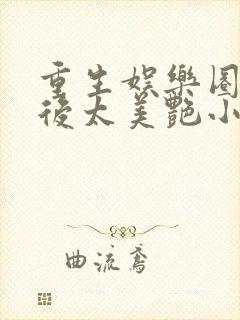 重生娛樂圈
後太美艷小
曲流鳶